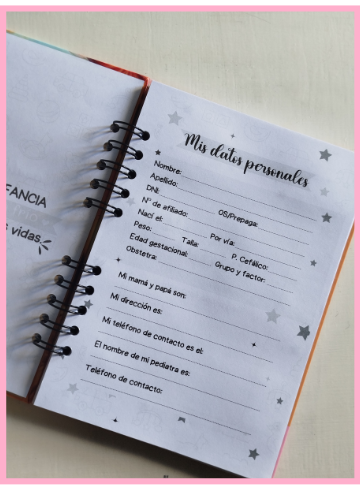 FANCIA
s vidas
Mis datos personales
Nombre:
Apellido:
DNI:
N° de afiliado: OS/Prepaga:
Nací el: Por vía:
Peso: Talla: P. Cefálico:
Edad gestacional: Grupo y factor:
Obstetra:
Mi mamá y papá son:
Mi dirección es:
Mi teléfono de contacto es el:
El nombre de mi pediatra es:
Teléfono de contacto: